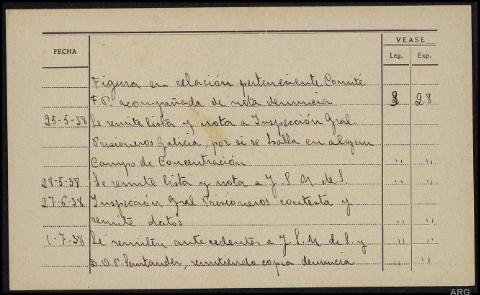 VEASE
FECHA Leg. Exp.
Figura en relación perteneciente Comité
F.P. acompañada de nota denuncia 3 28
25-5-38 Se remite lista y nota a Inspección Gral.
Prisioneros Galicia, por si se halla en algun
Campo de Concentración " "
28-5-38 Se remite lista y nota a J.S.M. de S. " "
27-6-38 Inspección Gral Prisioneros contesta y
remite datos " "
1-7-38 Se remiten antecedentes a J.S.M. de S. y " "
D.O.P. Santander, remitiendo copia denuncia " "
ARG